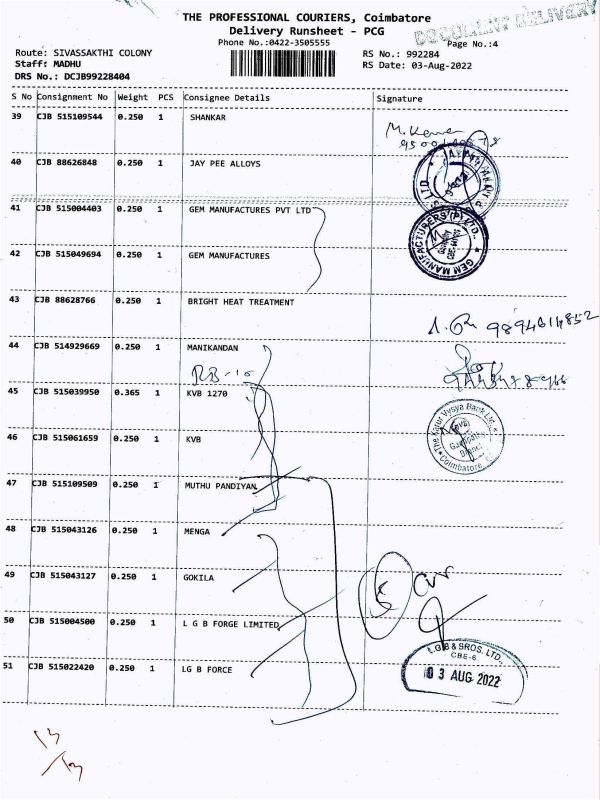 THE PROFESSIONAL COURIERS, Coimbatore
DOCUMENT DELIVERY
Delivery Runsheet - PCG
Phone No.:0422-3505555
Page No.:4
Route: SIVASSAKTHI COLONY
RS No.: 992284
Staff: MADHU
RS Date: 03-Aug-2022
DRS No.: DCJB99228404
S No Consignment No Weight PCS Consignee Details Signature
39 CJB 515109544 0.250 1 SHANKAR
40 CJB 88626848 0.250 1 JAY PEE ALLOYS
41 CJB 515004403 0.250 1 GEM MANUFACTURES PVT LTD
GEM MANUFACTURERS (P) LTD.,
42 CJB 515049694 0.250 1 GEM MANUFACTURES
43 CJB 88628766 0.250 1 BRIGHT HEAT TREATMENT
9894614852
44 CJB 514929669 0.250 1 MANIKANDAN
45 CJB 515039950 0.365 1 KVB 1270
The Karur Vysya Bank Ltd.
Coimbatore
46 CJB 515061659 0.250 1 KVB
47 CJB 515109509 0.250 1 MUTHU PANDIYAN
48 CJB 515043126 0.250 1 MENGA
49 CJB 515043127 0.250 1 GOKILA
50 CJB 515004500 0.250 1 L G B FORGE LIMITED
51 CJB 515022420 0.250 1 LG B FORCE
L.G.B & BROS. LTD.,
CBE-6.
03 AUG 2022